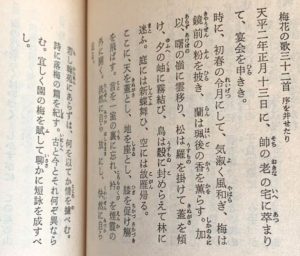 梅花の歌三十二首 序を并せたり
天平二年正月十三日に、帥の老の宅に萃まり
て、宴会を申き。
時に、初春の令月にして、気淑く風和ぎ、梅は
鏡前の粉を披き、蘭は珮後の香を薫らす。加
以、曙の嶺に雲移り、松は羅を掛けて蓋を傾
け、夕の岫に霧結び、鳥は縠に封めらえて林に
迷ふ。庭には新蝶舞ひ、空には故雁帰る。
ここに、天を蓋とし、地を座とし、膝を促け觴
を飛ばす。言を一室の裏に忘れ、衿を煙霞の
外に開く。淡然に自ら放し、快然に自ら
若し翰苑にあらずは、何を以てか情を攄べむ。
詩に落梅の篇を紀す。古と今とそれ何そ異なら
む。宜しく園の梅を賦して聊かに短詠を成すべ